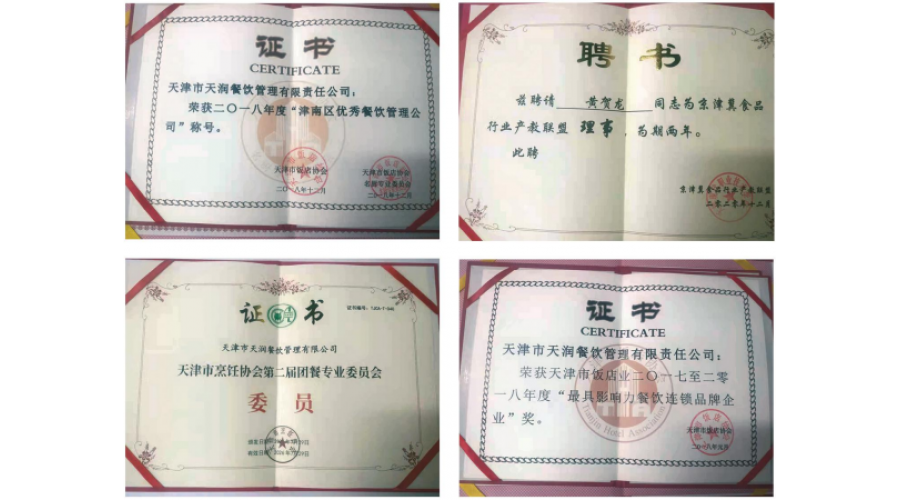 证书
CERTIFICATE
天津市天润餐饮管理有限责任公司：
荣获二〇一八年度“津南区优秀餐饮管理公
司”称号。
天津市饭店协会
二〇一八年十二月
聘书
兹聘请 黄贺龙 同志为京津冀食品
行业产教联盟 理事，为期两年。
此聘
京津冀食品行业产教联盟
二零二零年十二月
证书
天津市天润餐饮管理有限公司
天津市烹饪协会第二届团餐专业委员会
委员
证书
CERTIFICATE
天津市天润餐饮管理有限责任公司：
荣获天津市饭店业二〇一七至二零
一八年度“最具影响力餐饮连锁品牌企
业”奖。
Tianjin Hotel Association
天津市饭店协会